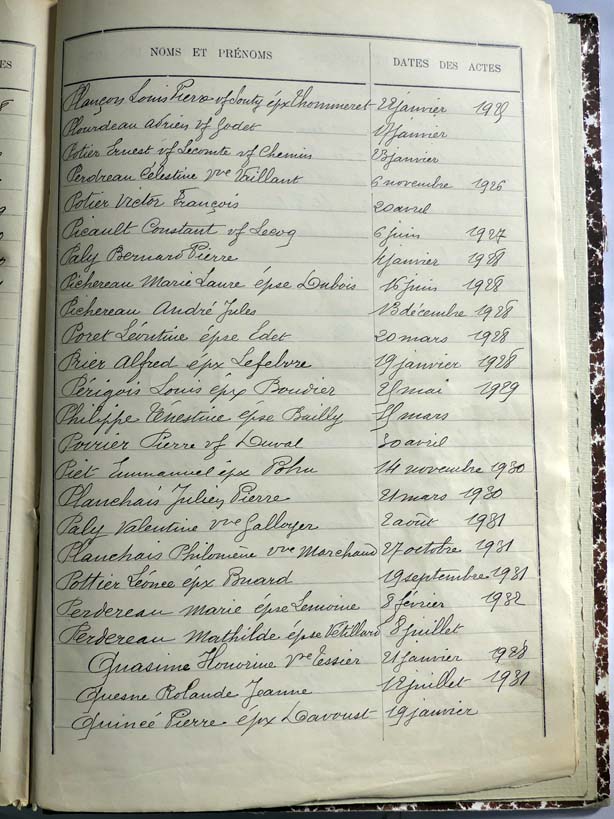 ES
NOMS ET PRÉNOMS DATES DES ACTES
Plançon Louis Pierre vf Souty épx Lhommeret 22 janvier 1925
Plourdeau Adrien vf Godet 17 janvier
Potier Ernest vf Lecomte vf Chemin 23 janvier
Perdreau Célestine vve Vaillant 6 novembre 1926
Potier Victor François 20 avril
Picault Constant vf Lecoq 6 juin 1927
Paly Bernard Pierre 4 janvier 1928
Pichereau Marie Laure épse Dubois 16 juin 1928
Pichereau André Jules 13 décembre 1928
Poret Léontine épse Edet 20 mars 1928
Prier Alfred épx Lefebvre 19 janvier 1928
Périgois Louis épx Boudier 25 mai 1929
Philippe Ernestine épse Bailly mars
Poirier Pierre vf Duval 30 avril
Piet Emmanuel épx 14 novembre 1930
Planchais Julien Pierre 21 mars 1930
Paly Valentine vve Galloyer 2 août 1931
Planchais Philomène vve Marchand 27 octobre 1931
Pottier Léonce épx Buard 19 septembre 1931
Perdereau Marie épse Lemoine 8 février 1932
Perdereau Mathilde épse Vétillard 8 juillet
Quasime Honorine vve Tessier 21 janvier 1928
Quesne Rolande Jeanne 12 juillet 1931
Quincé Pierre épx Davoust 19 janvier